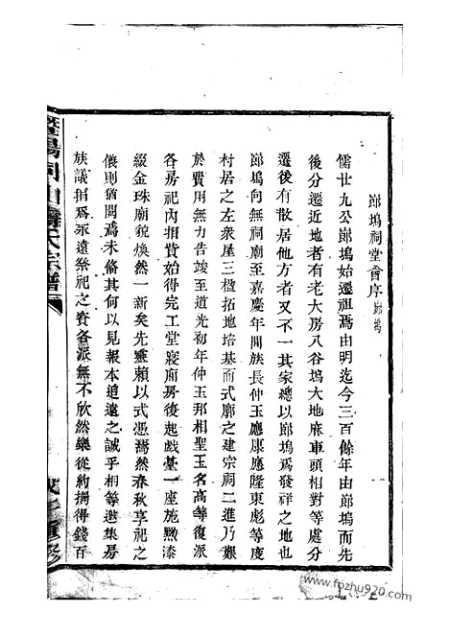 鄖塢祠堂會序鄖塢
儒廿九公鄖塢始遷祖焉由明迄今三百餘年由鄖塢而先
後分遷近地者有老大房八谷塢大地麻車頭相對等處分
遷後有散居他方者又不一其家總以鄖塢爲發祥之地也
鄖塢向無祠廟至嘉慶年間族長仲玉應康應隆東彪等度
村居之左衆屋三楹拓地培基而式廓之建宗祠二進乃艱
於費用無力告竣至道光初年仲玉邦相聖玉名高等復派
各房祀內捐貲始得完工堂寢廂房後起戲臺一座施黝漆
綴金珠廟貌煥然一新矣先靈賴以式憑焉然春秋享祀之
儀則猶闕焉未脩其何以見報本追遠之誠乎相等選集房
族議捐爲永遠祭祀之資各派無不欣然樂從約捐得錢百
暨陽 山 氏宗譜
重修
www.fpzhu920.com